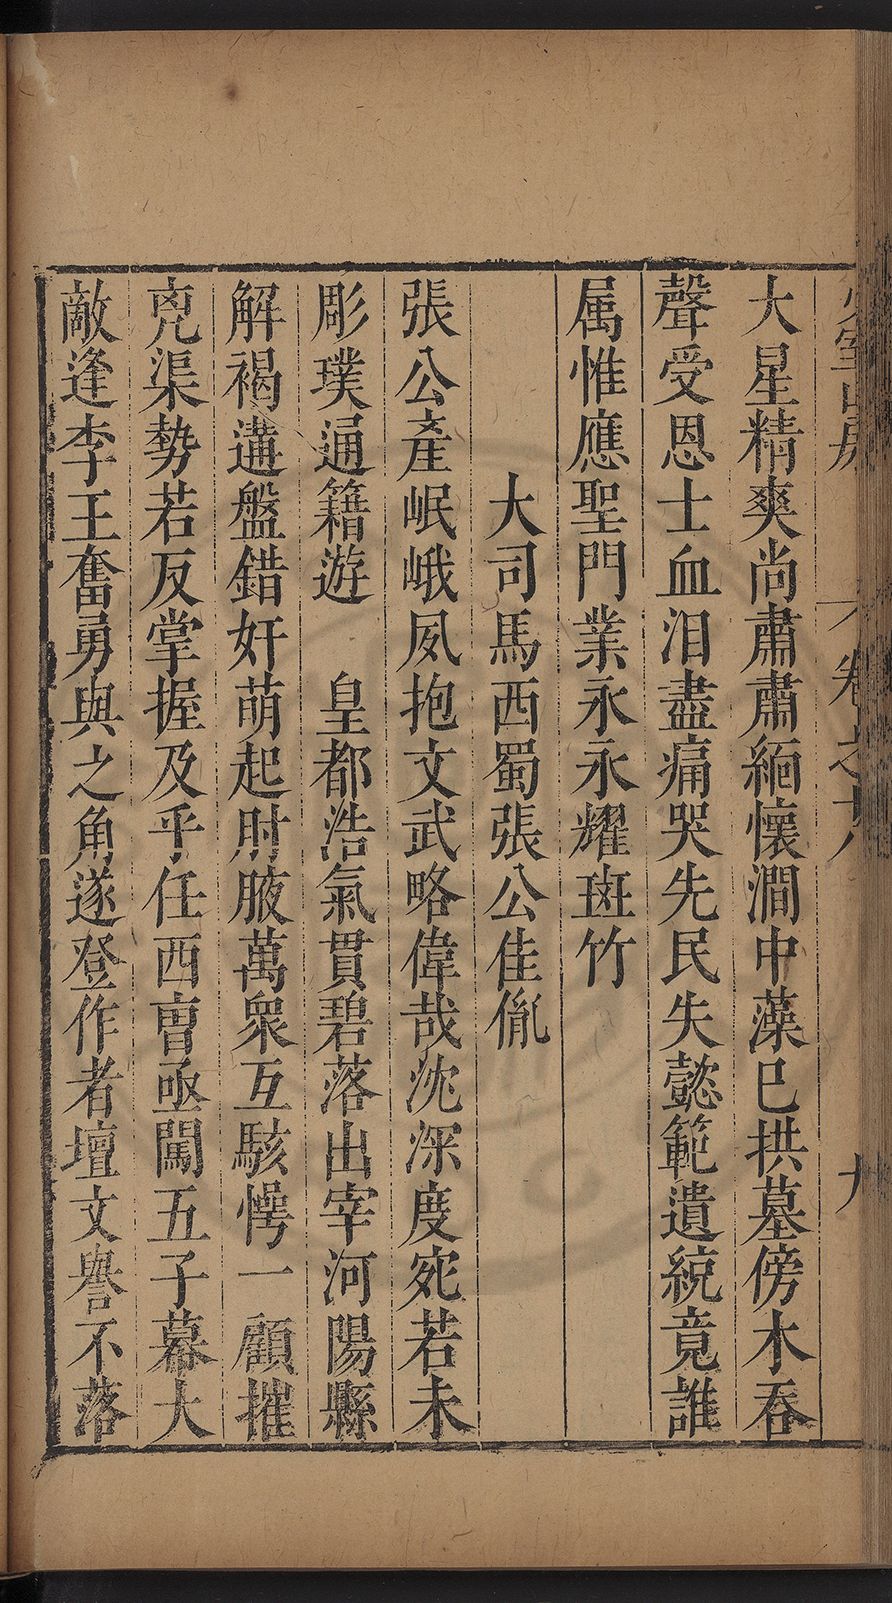 少室山房 卷之十八 九
大星精爽尚肅肅緬懷澗中藻已拱墓傍木吞
聲受恩士血泪盡痛哭先民失懿範遺統竟誰
属惟應聖門業永永耀斑竹
大司馬西蜀張公佳胤
張公產岷峨夙抱文武略偉哉沈深度宛若未
彫璞通籍遊 皇都浩氣貫碧落出宰河陽縣
解褐遘盤錯奸萌起肘腋萬衆互駭愕一顧摧
兇渠勢若反掌握及乎任西曹亟闖五子幕大
敵逢李王奮勇與之角遂登作者壇文譽不落